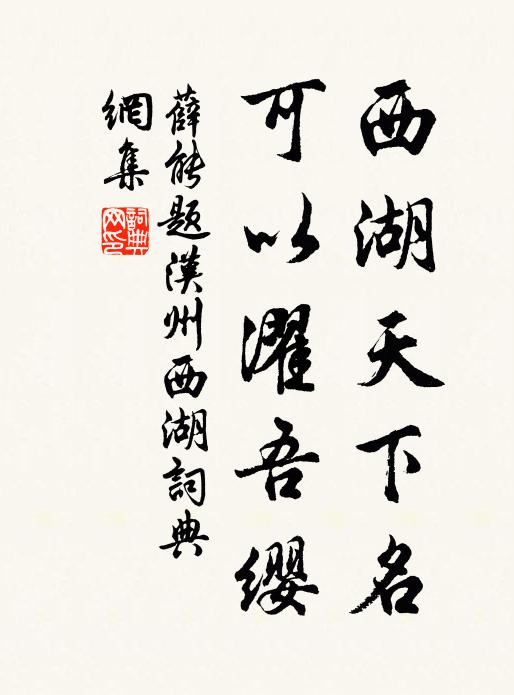 西湖天下名
可以濯吾缨
薛能题汉州西湖詞典
網集
詞典
网印